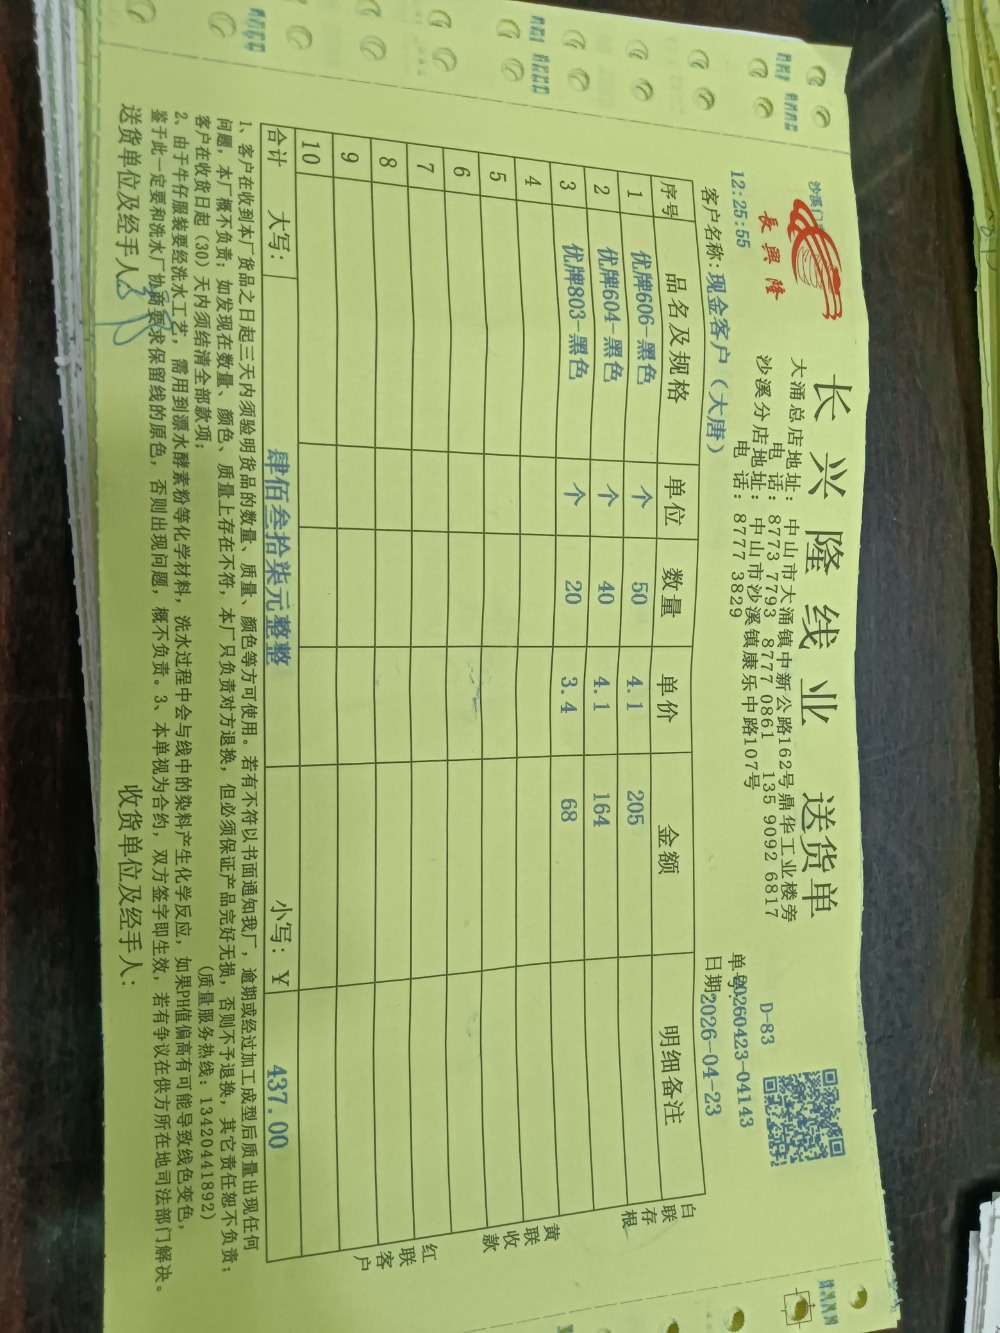 沙溪门
長興隆
长兴隆线业 送货单
大涌总店地址：中山市大涌镇中新公路162号鼎华工业楼旁
电 话：8773 7793 8777 0861 135 9092 6817
沙溪分店地址：中山市沙溪镇康乐中路107号
电 话：8777 3829
D-83
12:25:55
单号:20260423-04143
客户名称:现金客户（大唐）
日期2026-04-23
序号 品名及规格 单位 数量 单价 金额 明细备注
1 优牌606-黑色 个 50 4.1 205
2 优牌604-黑色 个 40 4.1 164
3 优牌803-黑色 个 20 3.4 68
4
5
6
7
8
9
10
合计 大写: 肆佰叁拾柒元整整 小写: ¥ 437.00
白联存根
黄联收款
红联客户
1、客户在收到本厂货品之日起三天内须验明货品的数量、质量、颜色等方可使用。若有不符以书面通知我厂，逾期或经过加工成型后质量出现任何
问题，本厂概不负责；如发现在数量、颜色、质量上存在不符，本厂只负责对方退换，但必须保证产品完好无损，否则不予退换，其它责任恕不负责；
客户在收货日起（30）天内须结清全部款项；（质量服务热线：13420441892）
2、由于牛仔服装要经洗水工艺，需用到漂水酵素粉等化学材料，洗水过程中会与线中的染料产生化学反应，如果PH值偏高有可能导致线色变色，
鉴于此一定要和洗水厂协商要求保留线的原色，否则出现问题，概不负责。3、本单视为合约，双方签字即生效，若有争议在供方所在地司法部门解决。
送货单位及经手人: 收货单位及经手人: